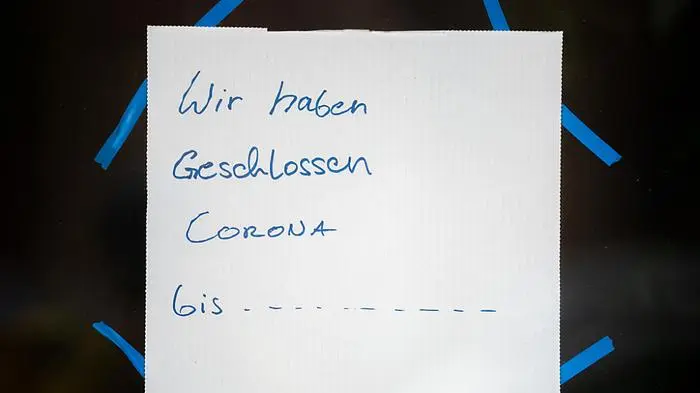 Wir haben
Geschlossen
CORONA
bis . _ _ _ . _ _ _ _ _